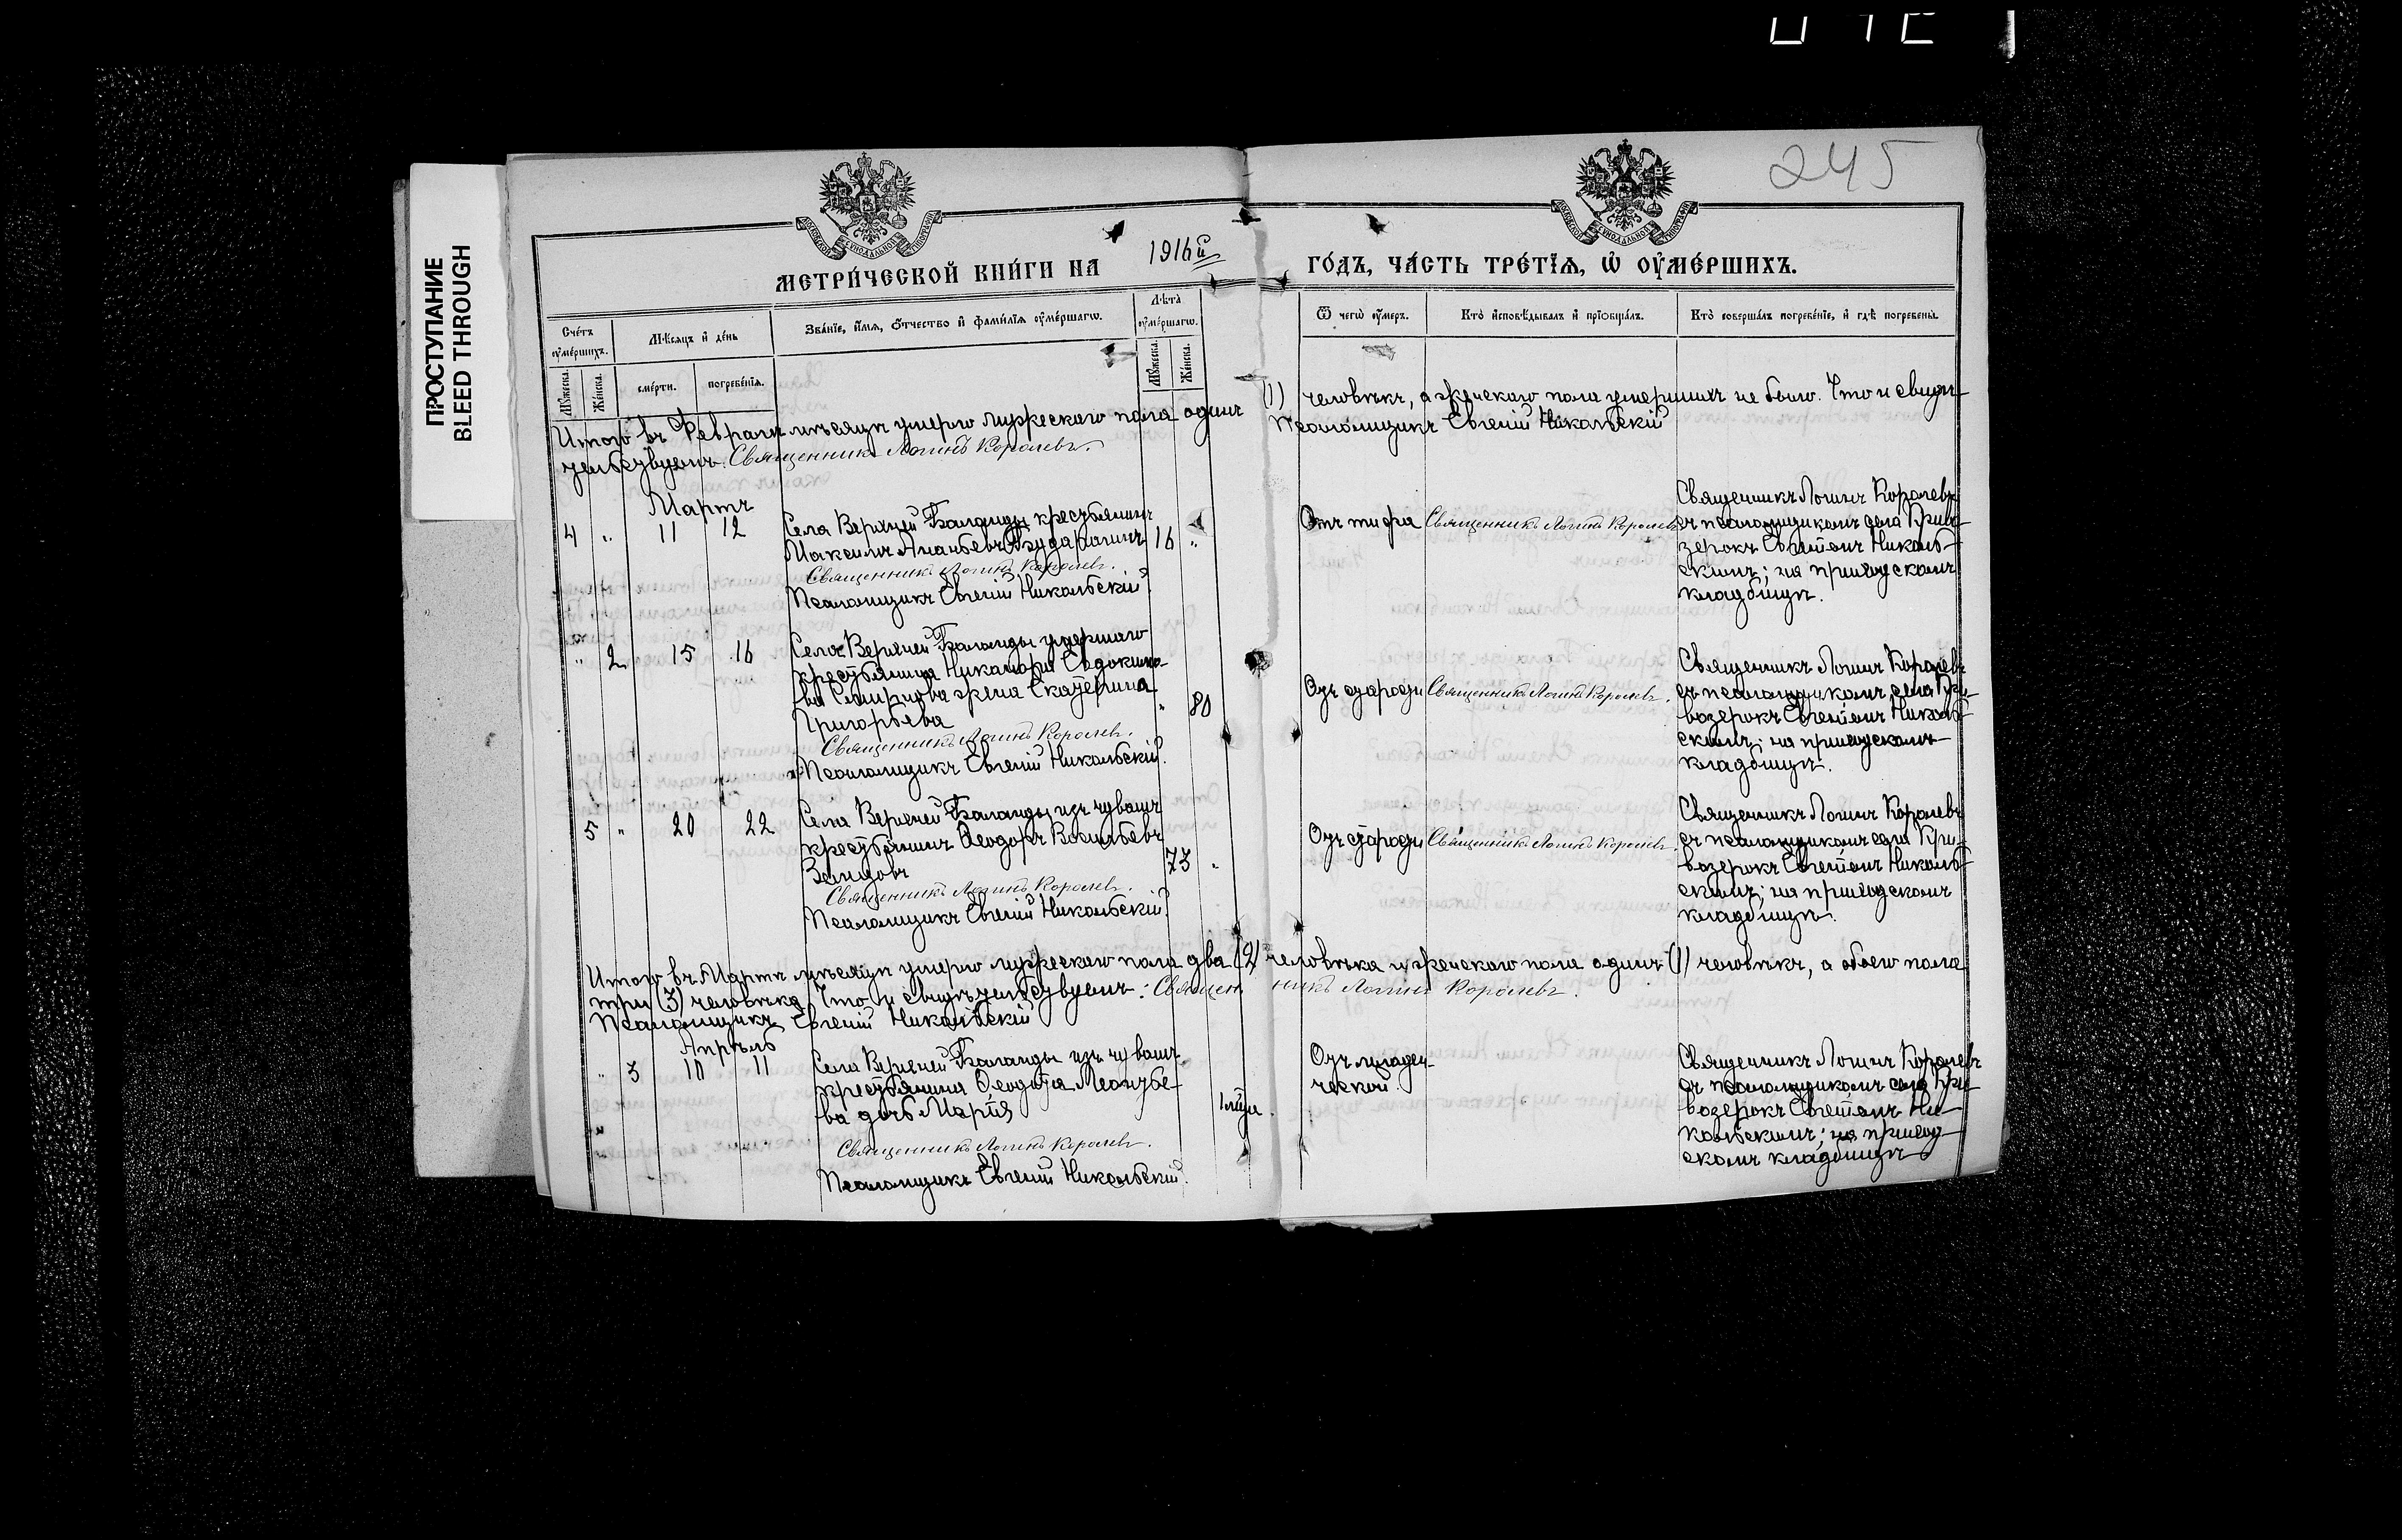 ПРОСТУПАНИЕ
BLEED THROUGH
245
МЕТРИ́ЧЕСКОЙ КНИ́ГИ НА 1916й ГО́ДЪ, ЧА́СТЬ ТРЕ́ТЇѦ, Ѡ҆ ОУ҆МЕ́РШИХЪ.
Сче́тъ оу҆ме́ршихъ.
Мꙋ́жеска.
Же́нска.
Мѣ́сяцъ и҆ де́нь
сме́рти.
погребе́нїѧ.
Зва́нїе, и҆́мѧ, ѻ҆́тчество и҆ фами́лїѧ оу҆ме́ршагѡ.
Лѣ́та оу҆ме́ршагѡ.
Мꙋ́жеска.
Же́нска.
Ѿ чегѡ̀ оу҆́меръ.
Кто̀ и҆сповѣ́дывалъ и҆ прїѻбща́лъ.
Кто̀ соверша́лъ погребе́нїе, и҆ гдѣ̀ погребены̀.
Итого въ Февралѣ мѣсяцѣ умерло мужескаго пола одинъ (1) человѣкъ, а женскаго пола умершихъ не было. Что и свидѣ-
тельствуемъ: Священникъ Логинъ Королевъ. Псаломщикъ Евгеній Никольскій
Мартъ
4 " 11 12
Села Верхней Баланды крестьянинъ
Максимъ Ананьевъ
16 "
Священникъ Логинъ Королевъ.
Псаломщикъ Евгеній Никольскій.
Отъ тифа
Священникъ Логинъ Королевъ
Священникъ Логинъ Королевъ
съ псаломщикомъ села Криво-
зерокъ Евгеніемъ Николь-
скимъ; на приходскомъ
кладбищѣ.
" 2 15 16
Села Верхней Баланды умершаго
крестьянина Никанора Евдокимо-
ва жена Екатерина
Григорьева
" 80
Священникъ Логинъ Королевъ.
Псаломщикъ Евгеній Никольскій.
Отъ старости
Священникъ Логинъ Королевъ.
Священникъ Логинъ Королевъ
съ псаломщикомъ села Кри-
возерокъ Евгеніемъ Николь-
скимъ; на приходскомъ
кладбищѣ.
5 " 20 22
Села Верхней Баланды изъ чувашъ
крестьянинъ Ѳеодоръ Васильевъ
73 "
Священникъ Логинъ Королевъ.
Псаломщикъ Евгеній Никольскій.
Отъ старости
Священникъ Логинъ Королевъ.
Священникъ Логинъ Королевъ
съ псаломщикомъ села Кри-
возерокъ Евгеніемъ Николь-
скимъ; на приходскомъ
кладбищѣ.
Итого въ Мартѣ мѣсяцѣ умерло мужескаго пола два (2) человѣка и женскаго пола одинъ (1) человѣкъ, а обоего пола
три (3) человѣка. Что и свидѣтельствуемъ: Священникъ Логинъ Королевъ.
Псаломщикъ Евгеній Никольскій
Апрѣль
" 3 10 11
Села Верхней Баланды изъ чувашъ
крестьянина Ѳеодота Леонтье-
ва дочь Марія
Священникъ Логинъ Королевъ.
Псаломщикъ Евгеній Никольскій.
Отъ младен-
ческой.
Священникъ Логинъ Королевъ
съ псаломщикомъ села Кри-
возерокъ Евгеніемъ Ни-
кольскимъ; на приход-
скомъ кладбищѣ